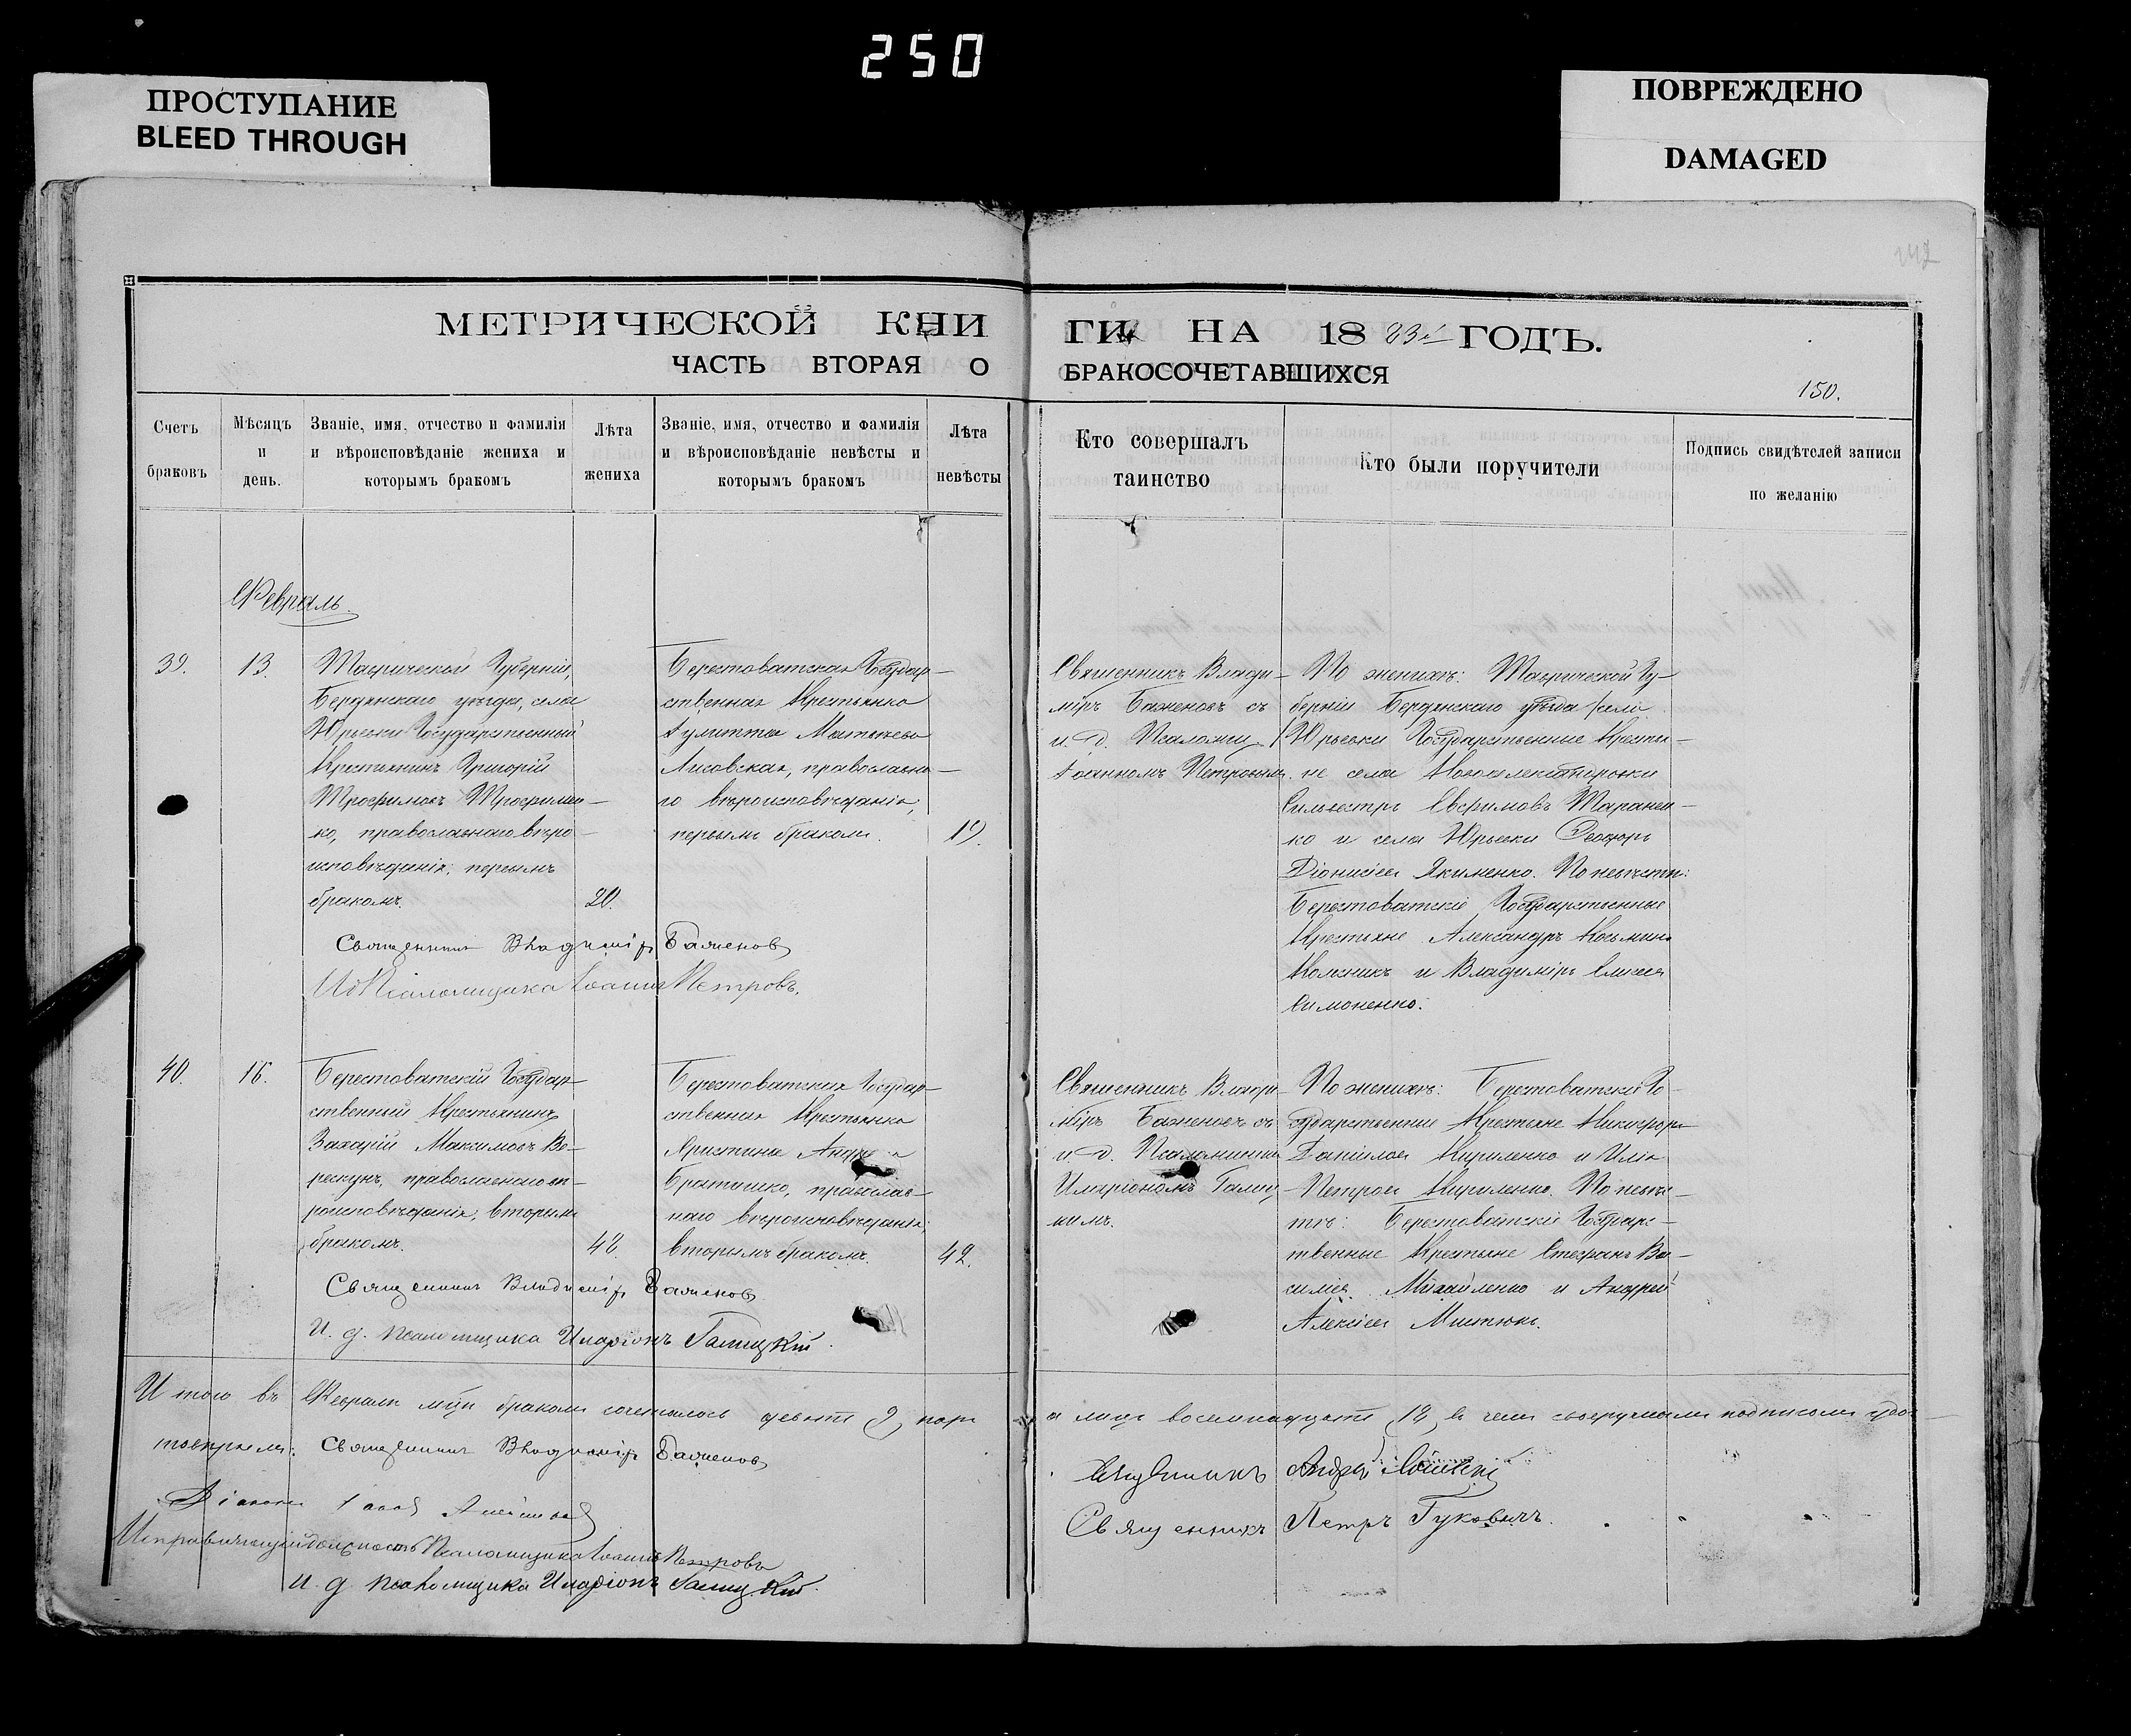 250
ПРОСТУПАНИЕ
BLEED THROUGH
ПОВРЕЖДЕНО
DAMAGED
МЕТРИЧЕСКОЙ КНИ
ГИ НА 1883й ГОДЪ.
ЧАСТЬ ВТОРАЯ О
БРАКОСОЧЕТАВШИХСЯ
150.
Счетъ
браковъ
Мѣсяцъ
и
день.
Званіе, имя, отчество и фамилія
и вѣроисповѣданіе жениха и
которымъ бракомъ
Лѣта
жениха
Званіе, имя, отчество и фамилія
и вѣроисповѣданіе невѣсты и
которымъ бракомъ
Лѣта
невѣсты
Кто совершалъ
таинство
Кто были поручители
Подпись свидѣтелей записи
по желанію
Февраль.
39.
13.
Таврической Губерніи,
Бердянскаго уѣзда, села
Юрьевки Государственный
Крестьянинъ Григорій
Трофимовъ Трофимен-
ко, православнаго вѣро-
исповѣданія, первымъ
бракомъ.
20.
Берестоватская Государ-
ственная Крестьянка
Іулитта Матвѣева
Лисовская, православна-
го вѣроисповѣданія,
первымъ бракомъ.
19.
Священникъ Влади-
міръ Баженовъ съ
и. д. Псаломщ.
Іоанномъ Петровымъ.
По женихѣ: Таврической Гу-
берніи Бердянскаго уѣзда села
Юрьевки Государственные Крестья-
не села Новоалександровки
Сильвестръ Евфимовъ Таранен-
ко и села Юрьевки Ѳеодоръ
Діонисіевъ Якименко. По невѣстѣ:
Берестоватскіе Государственные
Крестьяне Александръ Косьминъ
и Владиміръ Елисеевъ
Симоненко.
Священникъ Владиміръ Баженовъ
И д Псаломщика Іоаннъ Петровъ.
40.
16.
Берестоватскій Государ-
ственный Крестьянинъ
Захарій Максимовъ Ве-
рескунъ, православнаго вѣ-
роисповѣданія, вторымъ
бракомъ.
48.
Берестоватская Государ-
ственная Крестьянка
Христина
Братишко, православ-
наго вѣроисповѣданія,
вторымъ бракомъ.
42.
Священникъ Влади-
міръ Баженовъ съ
и д. Псаломщика
Иларіономъ Галиц-
кимъ.
По женихѣ: Берестоватскіе Го-
сударственные Крестьяне Никифоръ
Даніиловъ Кириленко и Илія
Петровъ Кириленко. По невѣс-
тѣ: Берестоватскіе Государс-
твенные Крестьяне Стефанъ Ва-
силіев. Михайленко и Андрей
Алексіевъ
Священникъ Владиміръ Баженовъ
И. д. псаломщика Иларіонъ Галицкій.
Итого въ Февралѣ м-цѣ бракомъ сочеталось девять 9, паръ
а лицъ восемнадцать 18, въ чемъ своеручнымъ подписомъ удос-
товѣряемъ: Священникъ Владиміръ Баженовъ
Діаконъ
Исправляющій должность Псаломщика Іоаннъ Петровъ
И. д. псаломщика Иларіонъ Галицкій.
Священникъ Андрей
Священникъ Петръ Гуковичъ.